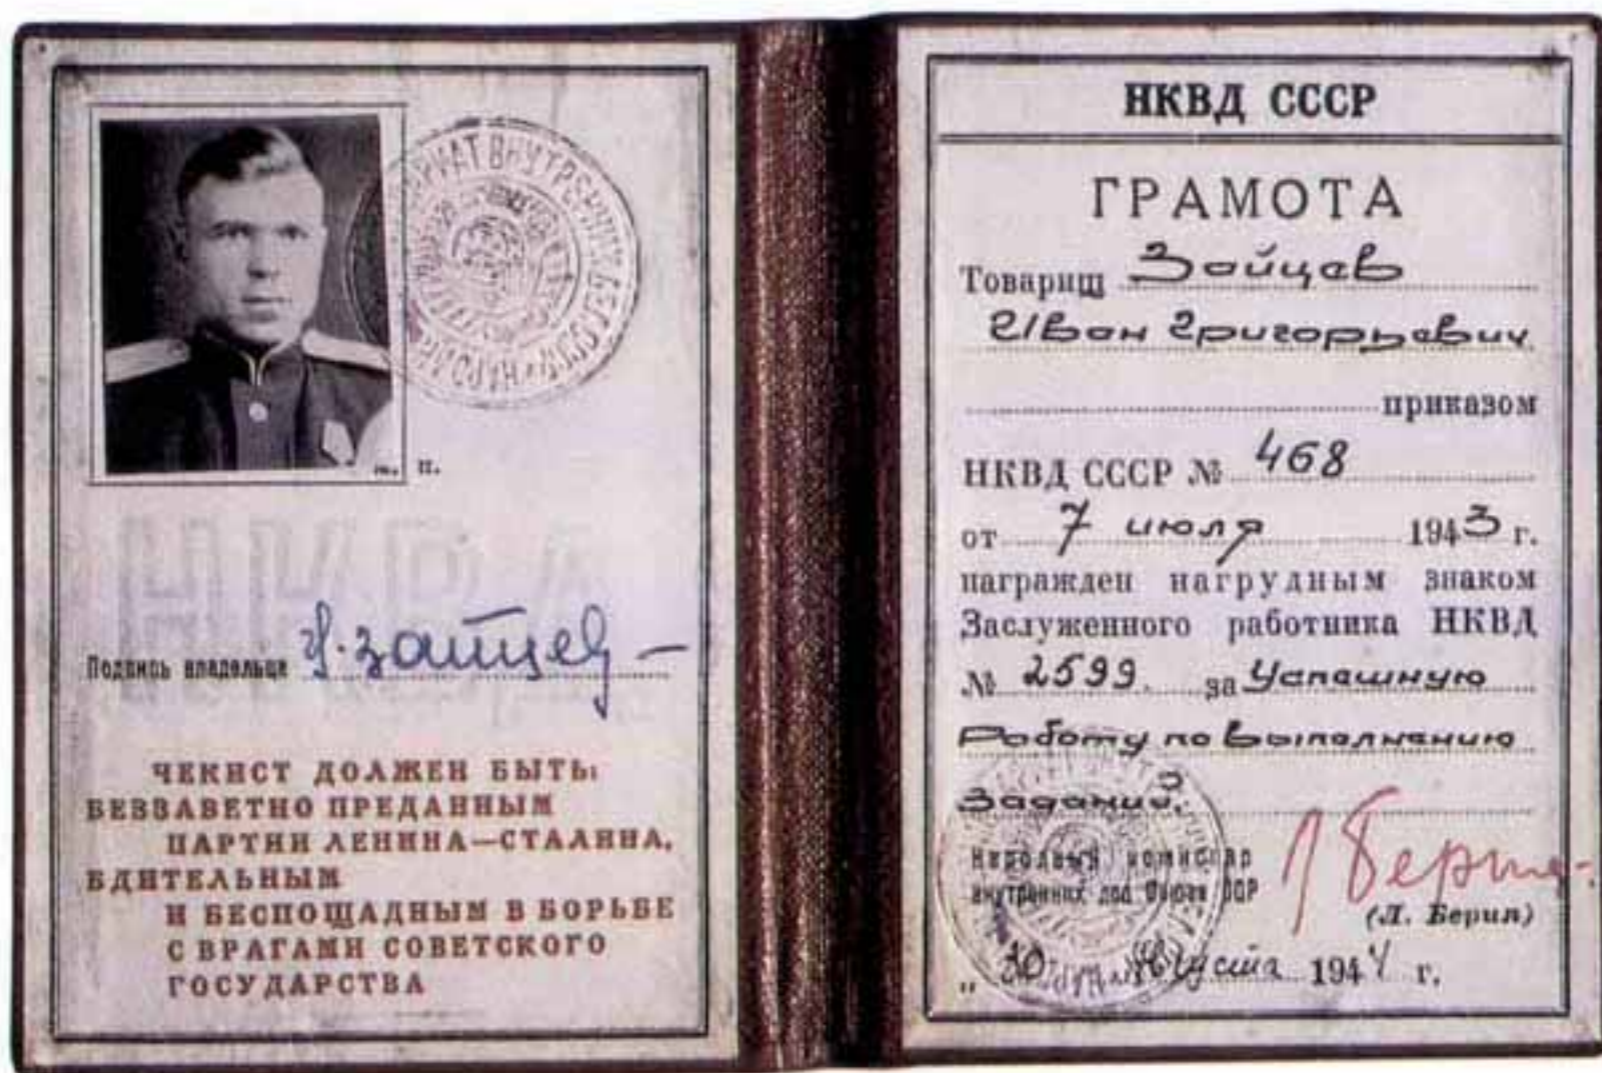 НАРОДНЫЙ КОМИССАРИАТ ВНУТРЕННИХ ДЕЛ СССР
м. п.
НКВД
Подпись владельца И. Зайцев
ЧЕКИСТ ДОЛЖЕН БЫТЬ:
БЕЗЗАВЕТНО ПРЕДАННЫМ
ПАРТИИ ЛЕНИНА—СТАЛИНА,
БДИТЕЛЬНЫМ
И БЕСПОЩАДНЫМ В БОРЬБЕ
С ВРАГАМИ СОВЕТСКОГО
ГОСУДАРСТВА
НКВД СССР
ГРАМОТА
Товарищ Зайцев
Иван Григорьевич
приказом
НКВД СССР № 468
от 7 июля 1943 г.
награжден нагрудным знаком
Заслуженного работника НКВД
№ 2599 за Успешную
Работу по выполнению
Заданий.
Народный комиссар
внутренних дел Союза ССР
Л Берия
(Л. Берия)
„30" Августа 1944 г.